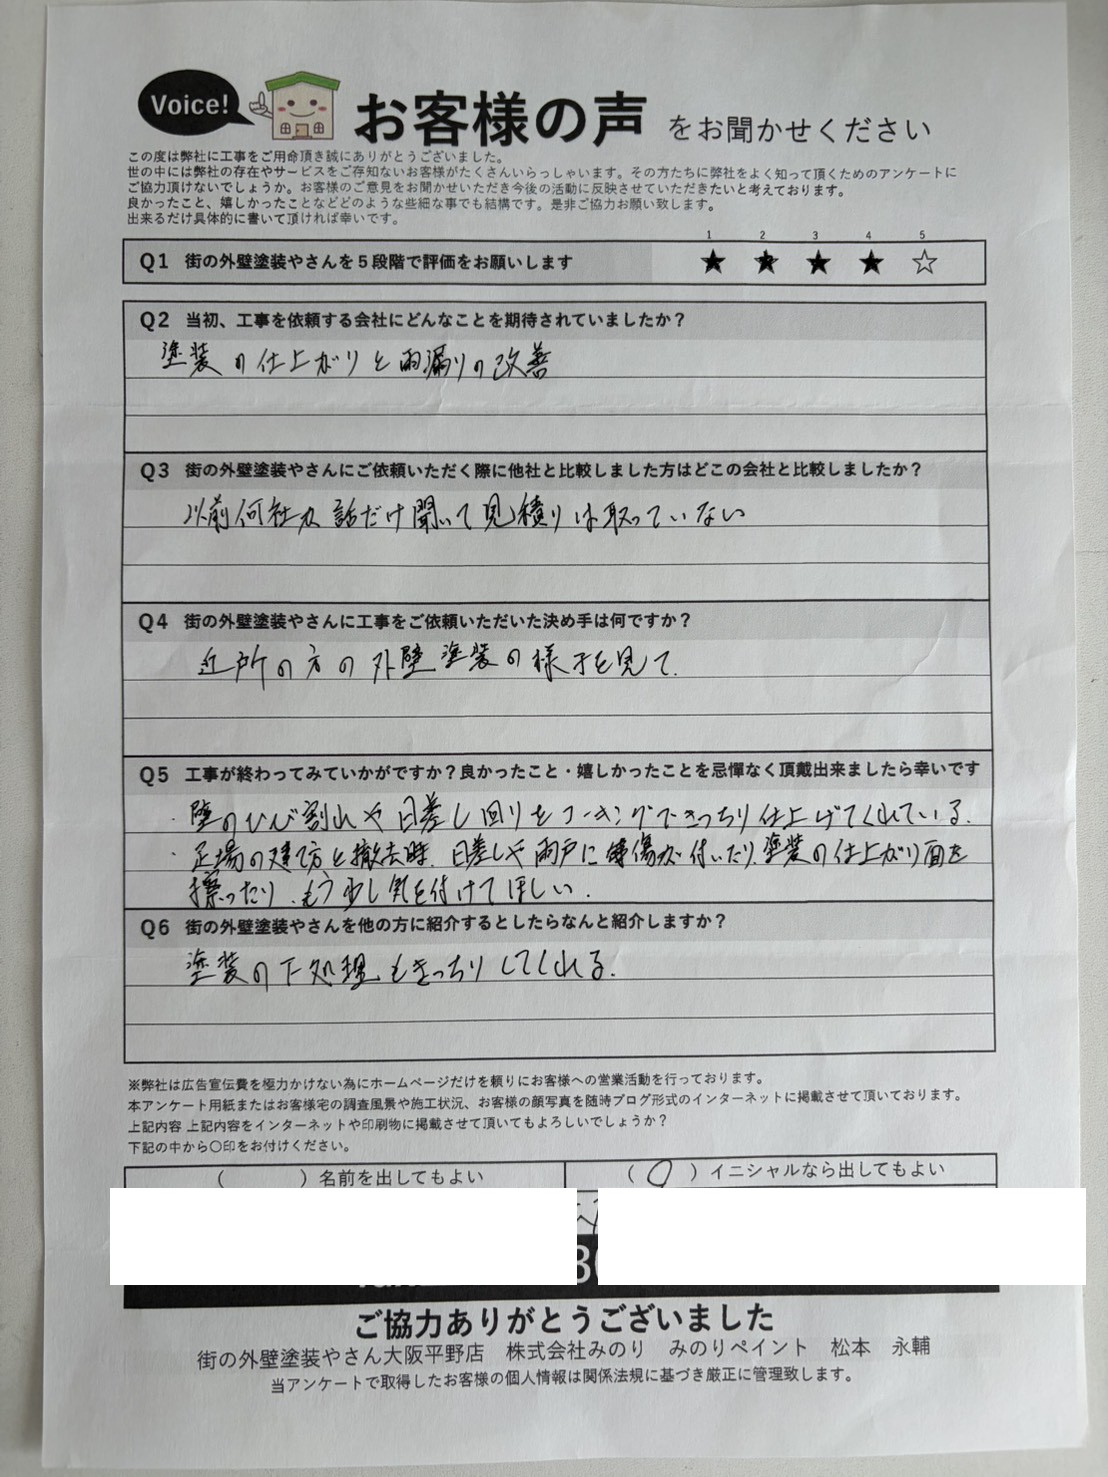 Voice!
お客様の声 をお聞かせください
この度は弊社に工事をご用命頂き誠にありがとうございました。
世の中には弊社の存在やサービスをご存知ないお客様がたくさんいらっしゃいます。その方たちに弊社をよく知って頂くためのアンケートに
ご協力頂けないでしょうか。お客様のご意見をお聞かせいただき今後の活動に反映させていただきたいと考えております。
良かったこと、嬉しかったことなどどのような些細な事でも結構です。是非ご協力お願い致します。
出来るだけ具体的に書いて頂ければ幸いです。
1 2 3 4 5
Q1 街の外壁塗装やさんを5段階で評価をお願いします ★ ★ ★ ★ ☆
Q2 当初、工事を依頼する会社にどんなことを期待されていましたか？
塗装の仕上がりと雨漏りの改善
Q3 街の外壁塗装やさんにご依頼いただく際に他社と比較しました方はどこの会社と比較しましたか？
以前何社か話だけ聞いて見積りは取っていない
Q4 街の外壁塗装やさんに工事をご依頼いただいた決め手は何ですか？
近所の方の外壁塗装の様子を見て.
Q5 工事が終わってみていかがですか？良かったこと・嬉しかったことを忌憚なく頂戴出来ましたら幸いです
・壁のひび割れや日差し回りをコーキングできっちり仕上げてくれている.
・足場の建て方と撤去時、日差しや雨戸に傷が付いたり、塗装の仕上がり面を
擦ったり、もう少し気を付けてほしい.
Q6 街の外壁塗装やさんを他の方に紹介するとしたらなんと紹介しますか？
塗装の下処理もきっちりしてくれる.
※弊社は広告宣伝費を極力かけない為にホームページだけを頼りにお客様への営業活動を行っております。
本アンケート用紙またはお客様宅の調査風景や施工状況、お客様の顔写真を随時ブログ形式のインターネットに掲載させて頂いております。
上記内容 上記内容をインターネットや印刷物に掲載させて頂いてもよろしいでしょうか？
下記の中から〇印をお付けください。
（　　）名前を出してもよい （ 〇 ）イニシャルなら出してもよい
ご協力ありがとうございました
街の外壁塗装やさん大阪平野店　株式会社みのり　みのりペイント　松本　永輔
当アンケートで取得したお客様の個人情報は関係法規に基づき厳正に管理致します。